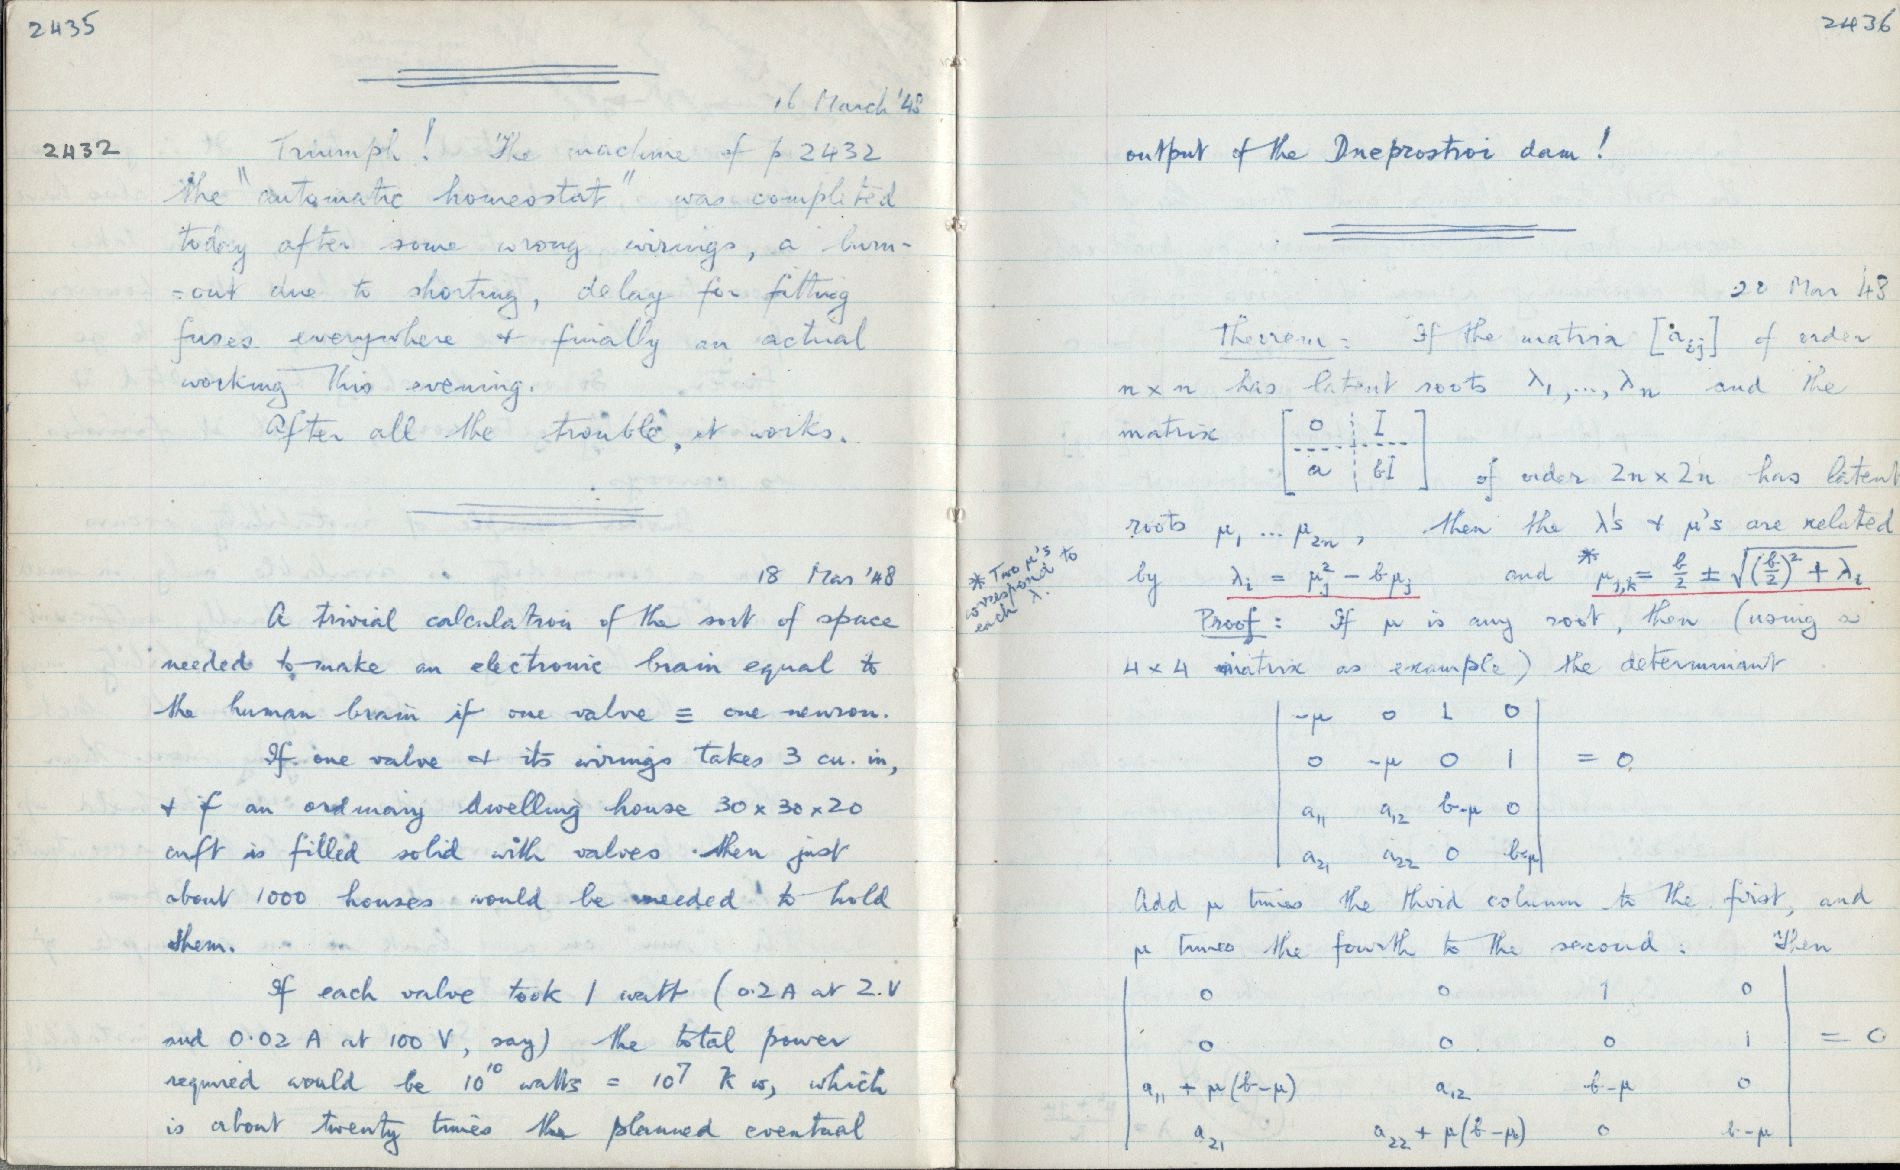 2435
16 March '48
2432
Triumph! The machine of p 2432
the "automatic homeostat" was completed
today after some wrong wirings, a burn-
-out due to shorting, delay for fitting
fuses everywhere & finally an actual
working this evening.
After all the trouble, it works.
18 Mar '48
A trivial calculation of the sort of space
needed to make an electronic brain equal to
the human brain if one valve ≡ one neuron.
If one valve & its wirings takes 3 cu. in,
& if an ordinary dwelling house 30 x 30 x 20
cuft is filled solid with valves then just
about 1000 houses would be needed to hold
them.
If each valve took 1 watt (0.2 A at 2.V
and 0.02 A at 100 V, say) the total power
required would be 10¹⁰ watts = 10⁷ Kw, which
is about twenty times the planned eventual
2436
output of the Dneprostroi dam!
Mar '48
Theorem: If the matrix [aᵢⱼ] of order
n x n has latent roots λ₁, ..., λₙ and the
matrix [ 0 | I
a | bI ] of order 2n x 2n has latent
roots μ₁ ... μ₂ₙ, then the λ's & μ's are related
by λᵢ = μⱼ² − bμⱼ and *μⱼ,ₖ = b/2 ± √((b/2)² + λᵢ)
* Two μ's
correspond to
each λ.
Proof: If μ is any root, then (using a
4 x 4 matrix as example) the determinant
| -μ 0 1 0 |
| 0 -μ 0 1 | = 0
| a₁₁ a₁₂ b-μ 0 |
| a₂₁ a₂₂ 0 b-μ |
Add μ times the third column to the first, and
μ times the fourth to the second: Then
| 0 0 1 0 |
| 0 0 0 1 | = 0
| a₁₁ + μ(b-μ) a₁₂ b-μ 0 |
| a₂₁ a₂₂ + μ(b-μ) 0 b-μ |